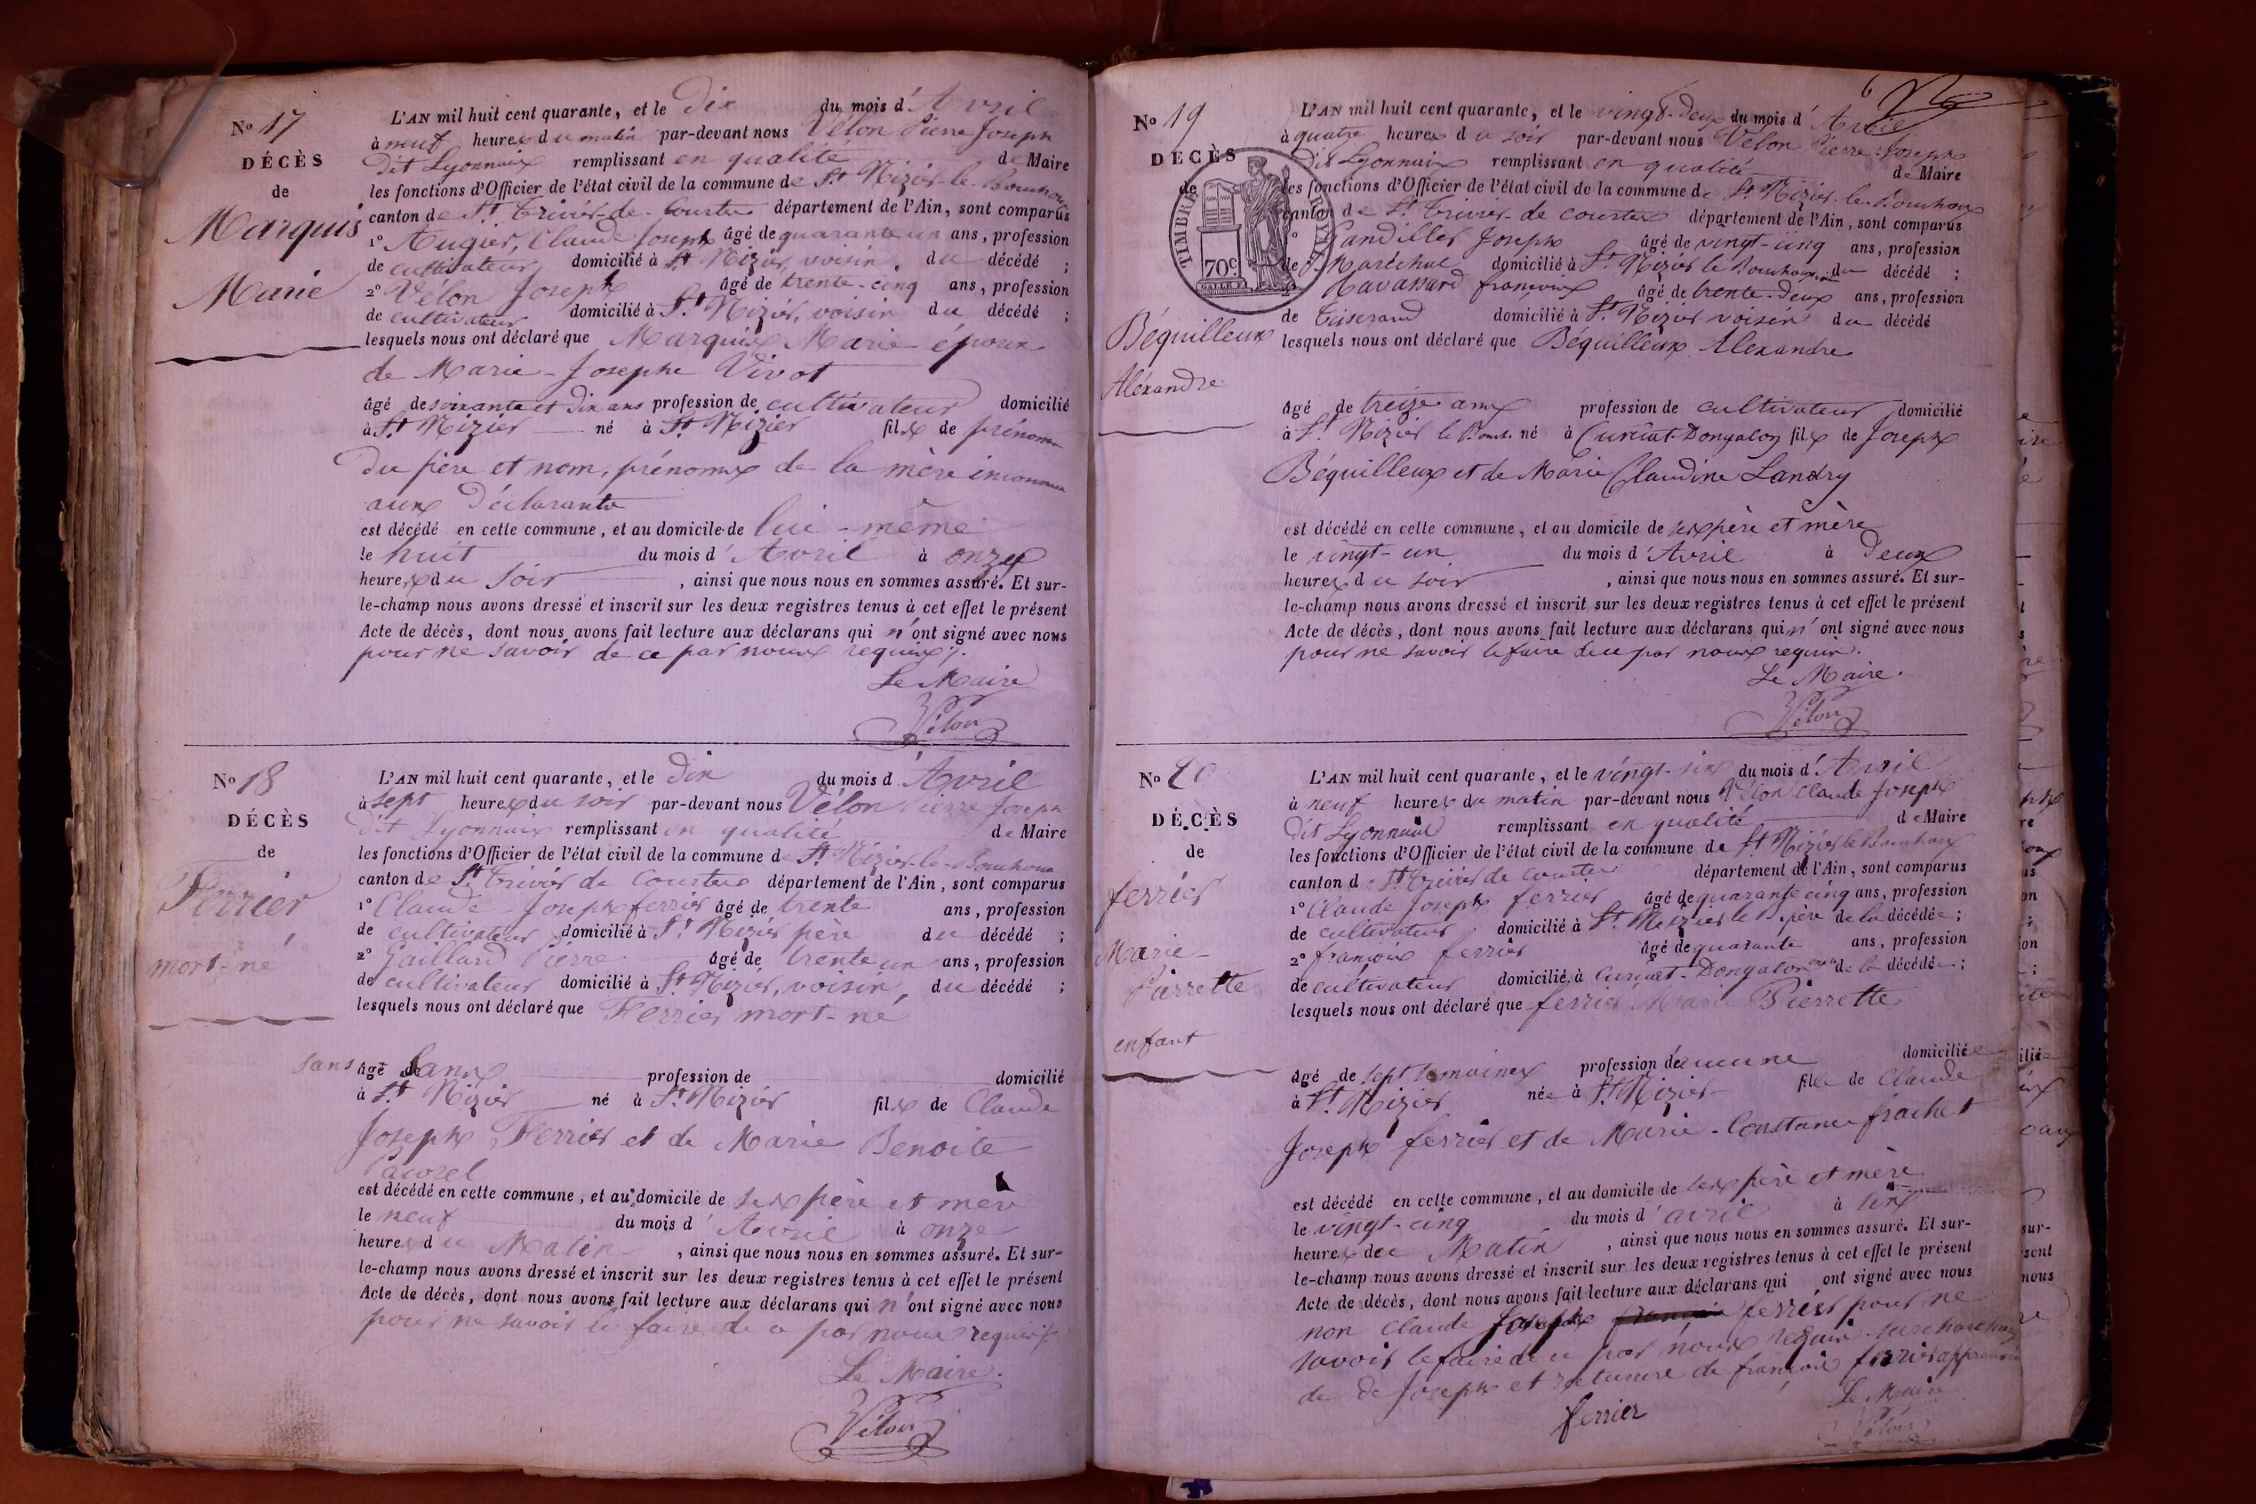 No 17
DÉCÈS
de
Marquis
Marie
L'AN mil huit cent quarante, et le Dix du mois d'Avril
à neuf heures du matin par-devant nous Vélon Pierre Joseph
dit Lyonnais remplissant en qualité de Maire
les fonctions d'Officier de l'état civil de la commune de St Nizier-le-Bouchoux
canton de St Trivier-de-Courtes département de l'Ain, sont comparus
1° Augier, Claude Joseph âgé de quarante un ans, profession
de cultivateur domicilié à St Nizier, voisin du décédé ;
2° Vélon Joseph âgé de trente-cinq ans, profession
de cultivateur domicilié à St Nizier, voisin du décédé ;
lesquels nous ont déclaré que Marquis Marie époux
de Marie-Josephe Vivot
âgé de soixante et dix ans profession de cultivateur domicilié
à St Nizier né à St Nizier fils de prénoms
du père et nom, prénoms de la mère inconnus
aux déclarants
est décédé en cette commune, et au domicile de lui-même
le huit du mois d'Avril à onze
heures du soir , ainsi que nous nous en sommes assuré. Et sur-
le-champ nous avons dressé et inscrit sur les deux registres tenus à cet effet le présent
Acte de décès, dont nous avons fait lecture aux déclarans qui n'ont signé avec nous
pour ne savoir de ce par nous requis.
Le Maire
Vélon
No 18
DÉCÈS
de
Ferrier
mort-né
L'AN mil huit cent quarante, et le Dix du mois d'Avril
à sept heures du soir par-devant nous Vélon Pierre Joseph
dit Lyonnais remplissant en qualité de Maire
les fonctions d'Officier de l'état civil de la commune de St Nizier-le-Bouchoux
canton de St Trivier de Courtes département de l'Ain, sont comparus
1° Claude Joseph ferrier âgé de trente ans, profession
de cultivateur domicilié à St Nizier père du décédé ;
2° Gaillard Pierre âgé de trente un ans, profession
de cultivateur domicilié à St Nizier, voisin, du décédé ;
lesquels nous ont déclaré que Ferrier mort-né
sans âgé de ans profession de domicilié
à St Nizier né à St Nizier fils de Claude
Joseph Ferrier et de Marie Benoite
est décédé en cette commune, et au domicile de ses père et mère
le neuf du mois d'Avril à onze
heures du Matin , ainsi que nous nous en sommes assuré. Et sur-
le-champ nous avons dressé et inscrit sur les deux registres tenus à cet effet le présent
Acte de décès, dont nous avons fait lecture aux déclarans qui n'ont signé avec nous
pour ne savoir le faire de ce par nous requis
Le Maire.
Vélon
6
No 19
DÉCÈS
de
TIMBRE ROYAL
70c
Béquilleux
Aléxandre
L'AN mil huit cent quarante, et le vingt-deux du mois d'Avril
à quatre heures du soir par-devant nous Vélon Pierre Joseph
dit Lyonnais remplissant en qualité de Maire
les fonctions d'Officier de l'état civil de la commune de St Nizier-le-Bouchoux
canton de St Trivier-de-Courtes département de l'Ain, sont comparus
1° Joseph âgé de vingt-cinq ans, profession
de Maréchal domicilié à St Nizier le Bouchoux, voisin du décédé ;
2° françois âgé de trente-deux ans, profession
de Tisserand domicilié à St Nizier voisin du décédé
lesquels nous ont déclaré que Béquilleux Alexandre
âgé de treize ans profession de cultivateur domicilié
à St Nizier le Bouch. né à Curciat-Dongalon fils de Joseph
Béquilleux et de Marie Claudine Landry
est décédé en cette commune, et au domicile de ses père et mère
le vingt-un du mois d'Avril à deux
heures du soir , ainsi que nous nous en sommes assuré. Et sur-
le-champ nous avons dressé et inscrit sur les deux registres tenus à cet effet le présent
Acte de décès, dont nous avons fait lecture aux déclarans qui n'ont signé avec nous
pour ne savoir le faire de ce par nous requis.
Le Maire.
Vélon
No 20
DÉCÈS
de
ferrier
Marie-
Pierrette
enfant
L'AN mil huit cent quarante, et le vingt-six du mois d'Avril
à neuf heures du matin par-devant nous Vélon Claude Joseph
dit Lyonnais remplissant en qualité de Maire
les fonctions d'Officier de l'état civil de la commune de St Nizier le Bouchoux
canton d St Trivier de Courtes département de l'Ain, sont comparus
1° Claude Joseph ferrier âgé de quarante cinq ans, profession
de cultivateur domicilié à St Nizier le B. père de la décédée ;
2° françois ferrier âgé de quarante ans, profession
de cultivateur domicilié à Curciat-Dongalon oncle de la décédée ;
lesquels nous ont déclaré que ferrier Marie Pierrette
âgé de sept semaines profession d'aucune domiciliée
à St Nizier née à St Nizier fille de Claude
Joseph ferrier et de Marie-Constance frachet
est décédé en cette commune, et au domicile de ses père et mère
le vingt-cinq du mois d'avril à six
heures du Matin , ainsi que nous nous en sommes assuré. Et sur-
le-champ nous avons dressé et inscrit sur les deux registres tenus à cet effet le présent
Acte de décès, dont nous avons fait lecture aux déclarans qui ont signé avec nous
non Claude Joseph ferrier pour ne
savoir le faire de ce par nous requis surcharge
de Joseph et rature de françois ferrier approuvée
Le Maire
ferrier
Vélon